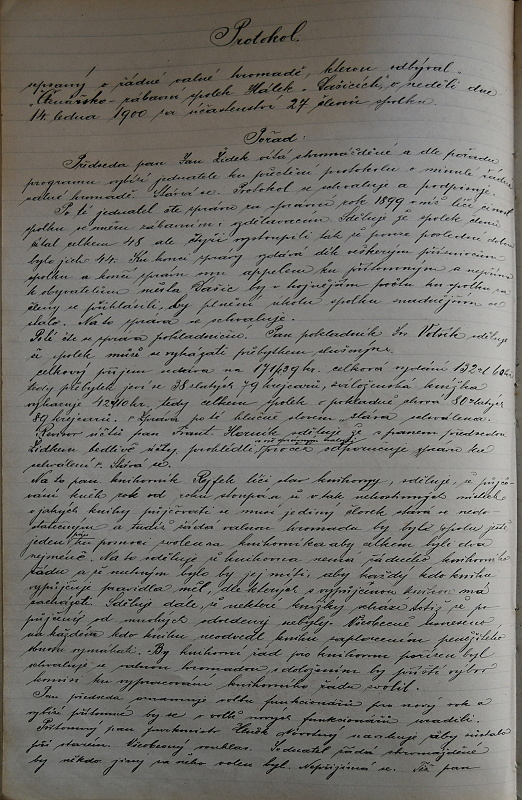 Protokol.
sepsaný o řádné valné hromadě, kterou odbýval
"Čtenářsko-zábavní spolek Hálek v Sašicích", v neděli dne
14. ledna 1900 za účastenství 27 členů spolku.
Pořad:
Předseda pan Jan Žídek vítá shromážděné a dle pořadu
programu vybízí jednatele ku přečtení protokolu o minulé řádné
valné hromadě. Stává se. Protokol se schvaluje a podpisuje.
Po té jednatel čte zprávu za správní rok 1899 v níž líčí činnost
spolku ve směru zábavním i vzdělávacím. Sděluje že spolek členů
čítal celkem 48 ale čtyři vystoupili tak že pouze poslední dobou
bylo jich 44. Ku konci zprávy vzdává dík veškerým příznivcům
spolku a končí zprávu svou appelem ku přítomným a
k obyvatelům města by v hojnějším počtu ku spolku za
členy se přihlásili, by plnění úkolu spolku snadnějším se
stalo. Na to zpráva se schvaluje.
Poté čte se zpráva pokladniční. Pan pokladník Fr. Votsík sděluje
že spolek může se vykázati přebytkem slušným.
celkový příjem 171 zl 39 kr. celková vydání 132 zl 60 kr
tedy přebytek jeví se 38 zlatých 79 krejcarů, záloženská knížka
vykazuje 42 zl 10 kr, tedy celkem spolek v pokladně chová 80 zlatých
89 krejcarů. Zpráva po té hlučně slovem "sláva" schválena.
Revisor účtů pan Frant. Horník sděluje že s panem předsedou
Žídkem bedlivě účty prohlédli, pročež odporučuje zprávu ku
schválení. Stává se.
Na to pan knihovník Ryfek líčí stav knihovny, sděluje, že půjčo-
vání knih rok od roku stoupá a že v tak
knihy půjčovati se musí jediný člověk stává se nedo-
statečným a tudíž žádá valnou hromadu by byla spolu ještě
jedna ku pomoci zvolena knihovníka aby celkem byli dva
nejméně. Na to sděluje že knihovna nemá žádného knihovního
řádu a že nutným bylo by jej míti, aby každý kdo knihu
vypůjčuje pravidla měl, dle kterých s vypůjčenou knihou má
zacházeti. Sděluje dále, že některé knížky schází totiž že po
půjčení od mnohých odvedeny nebyly. Všeobecně usneseno,
na každém kdo knihu neodvedl knihu zaplacením peněžitého
obnosu vymáhati. By knihovní řád pro knihovnu pořízen byl
schvaluje se valnou hromadou s doložením by příští výbor
komisi ku vypracování knihovního řádu zvolil.
Pan předseda oznamuje volbu funkcionářů pro nový rok a
vybízí přítomné by se o volbě nových funkcionářů uradili.
Přítomný pan navrhuje, aby zůstalo
při starém. Všeobecný souhlas. Jednatel žádá shromážděné
by někdo jiný za něho volen byl. Nepřijímá se. Též pan